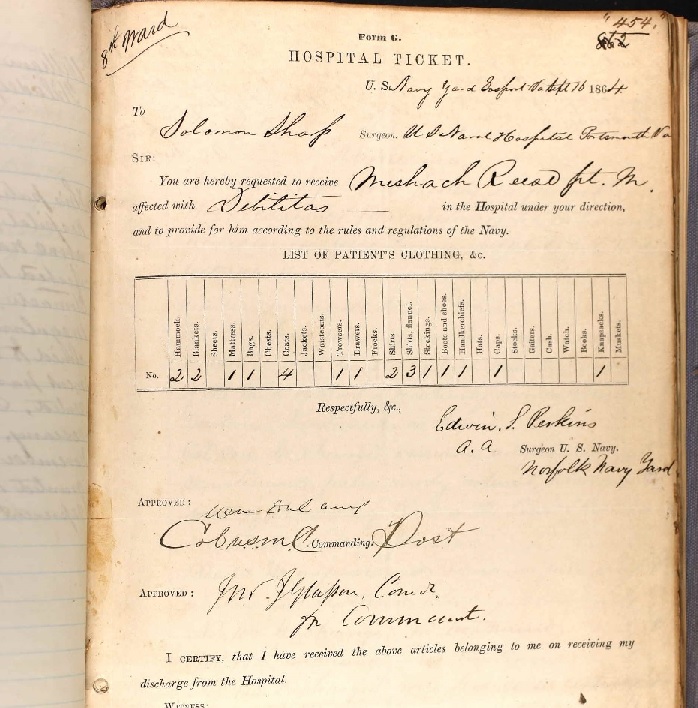 8th Ward
"454"
862
Form G.
HOSPITAL TICKET.
U. S. Navy Yard Gosport Va Sept 16 1864
To
Solomon Sharp Surgeon, U S Naval Hospital Portsmouth Va
SIR:
You are hereby requested to receive Meshach Reead pt. M.
affected with Debilitas in the Hospital under your direction,
and to provide for him according to the rules and regulations of the Navy.
LIST OF PATIENT'S CLOTHING, &c.
Hammock. Blankets. Sheets. Mattress. Bags. Chests. Coats. Jackets. Waistcoats. Trowsers. Drawers. Frocks. Shirts. Shirts, flannel. Stockings. Boots and shoes. Handkerchiefs. Hats. Caps. Stocks. Gaiters. Cash. Watch. Books. Knapsacks. Muskets.
No. 2 2 1 1 4 1 1 2 3 1 1 1 1 1
Respectfully, &c.,
Edwin. S. Perkins
A. A. Surgeon U. S. Navy.
Norfolk Navy Yard
APPROVED:
Commanding Post
APPROVED: Jno. J Glasson, Comdr.
for Commdant.
I CERTIFY, that I have received the above articles belonging to me on receiving my
discharge from the Hospital.
WITNESS: